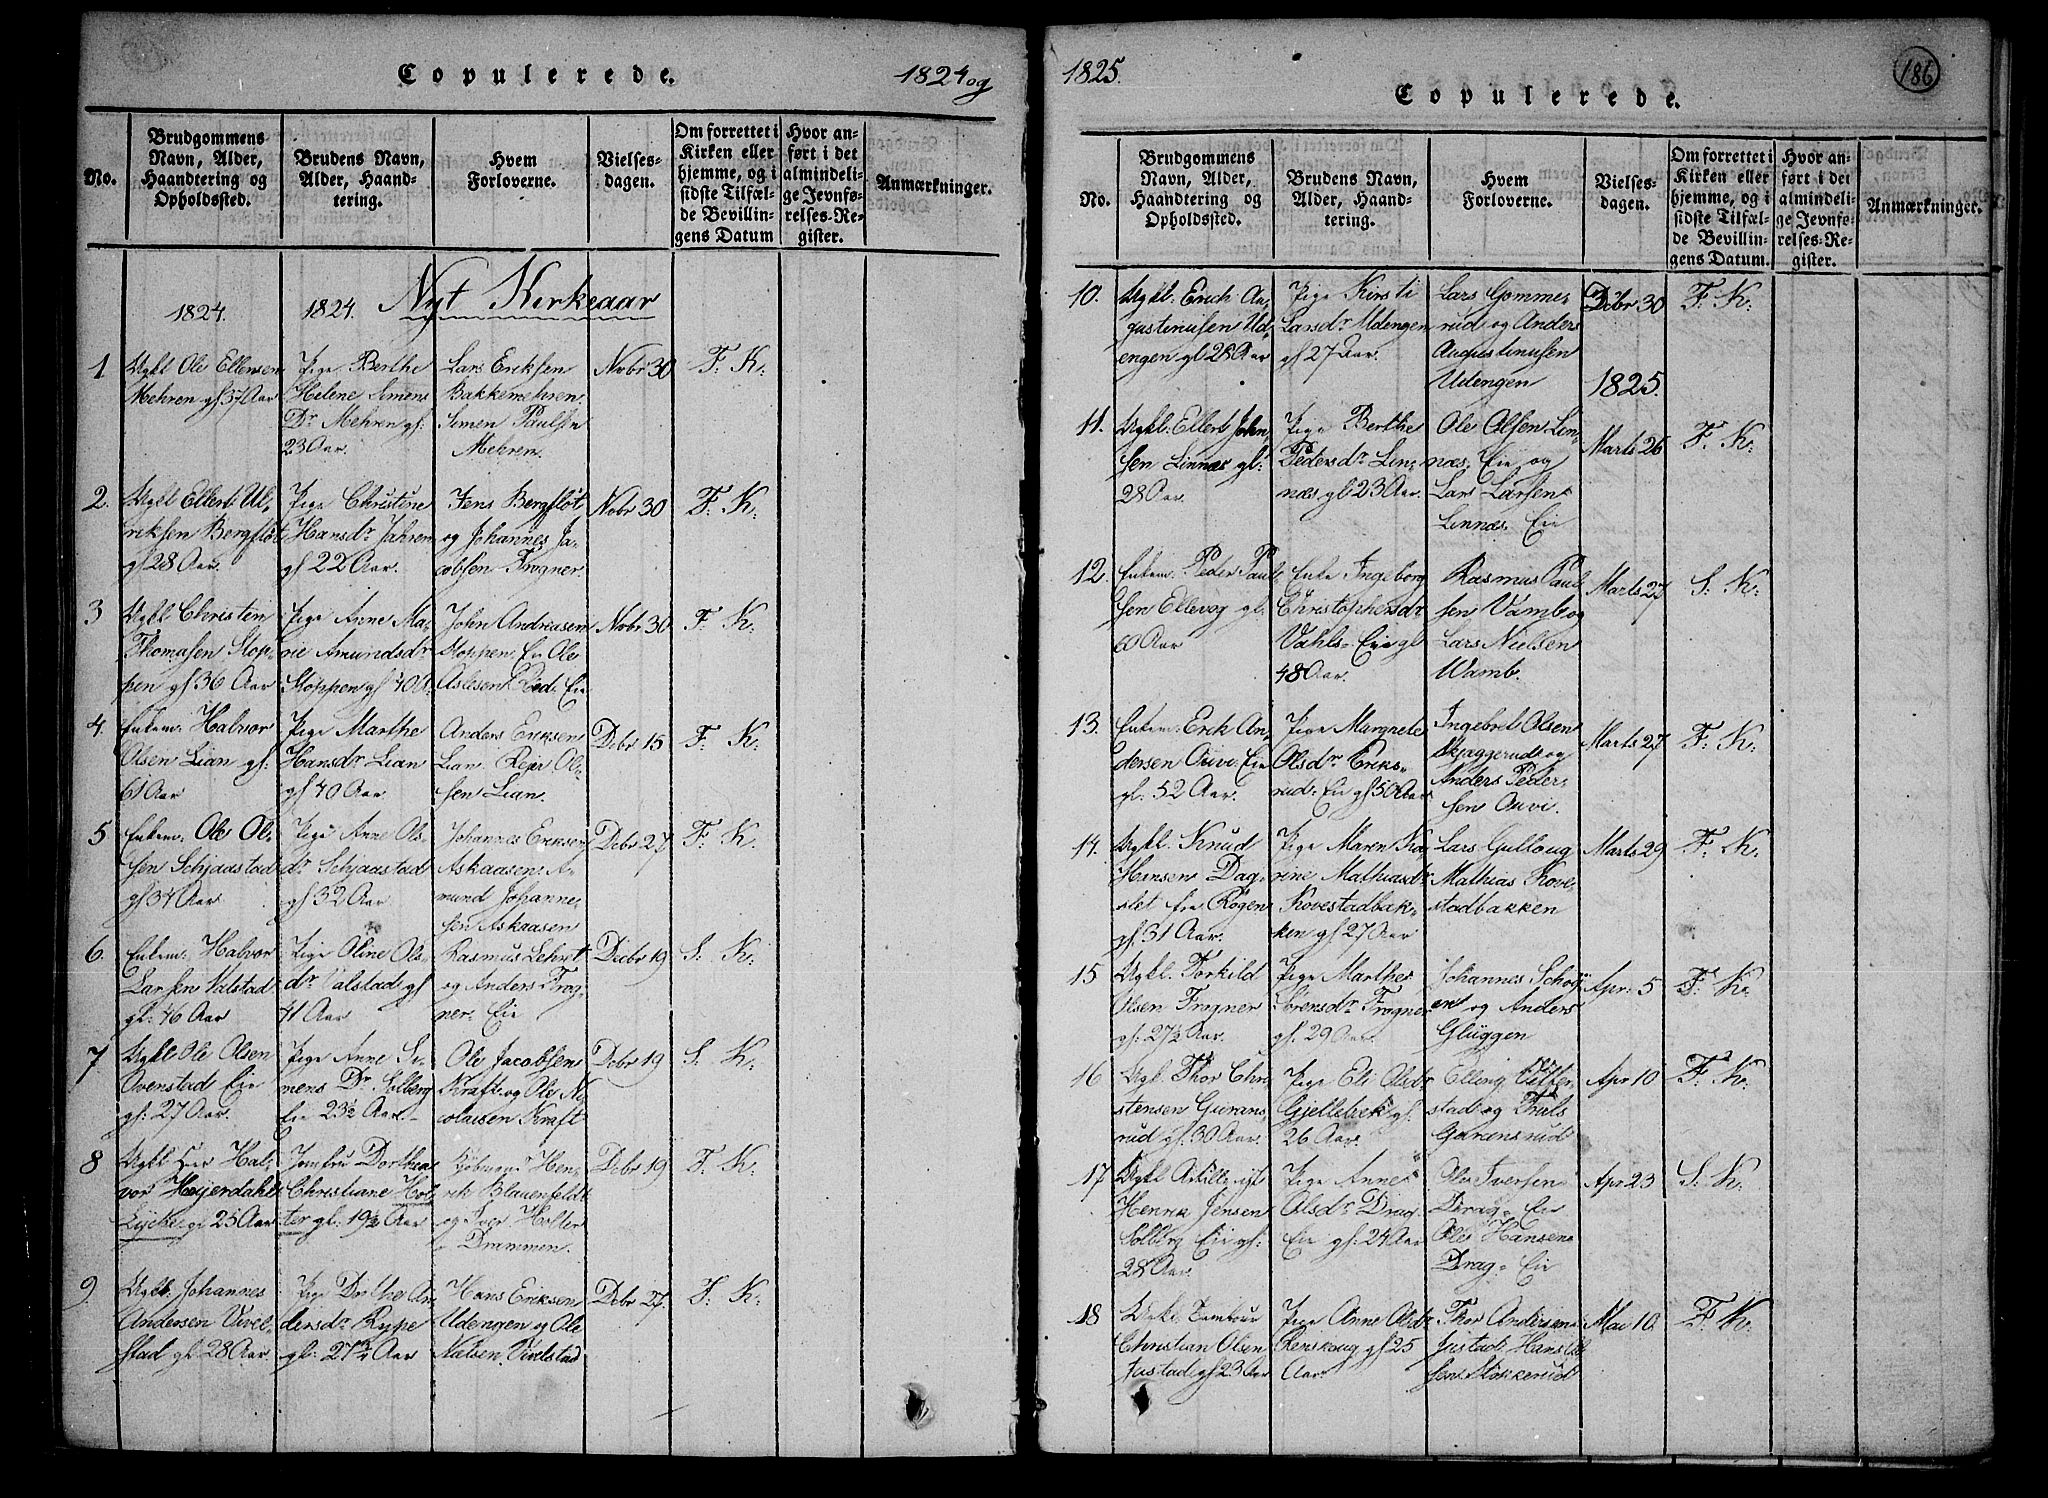 Copulerede.
1824 og
No.
Brudgommens
Navn, Alder,
Haandtering og
Opholdssted.
Brudens Navn,
Alder, Haand-
tering.
Hvem
Forloverne.
Vielses-
dagen.
Om forrettet i
Kirken eller
hjemme, og i
sidste Tilfæl-
de Bevillin-
gens Datum
Hvor an-
ført i det
almindeli-
ge Jevnfø-
relses-Re-
gister.
Anmærkninger.
1824.
1824.
Nyt Kirkeaar
1
Ugkl Ole Ellensen
Mehren gl 37 Aar
Pige Berthe
Helene Simens
Dr. Mehren gl:
23 Aar.
Lars Eriksen
Bakkemehren.
Simen Paulsen
Mehren.
Novbr 30
F: K:
2.
Ugkl Ellert Ul-
riksen Bergfløt
gl 28 Aar.
Pige Christine
Hansdr Jahren
gl 22 Aar.
Jens Bergfløt
og Johannes Ja-
cobsen Frogner.
Nobr 30
F: K:
3
Ugkl Christen
Thomasen Stop-
pen gl 36 Aar
Pige Anne Ma-
rie Amundsdr
Stoppen gl 40 A.
John Andreasen
Stoppen Eie Ole
Aslesen Rød: Eie
Nobr 30
F: K:
4.
Enkem: Halvor
Olsen Lian gl:
61 Aar
Pige Marthe
Hansdr Lian
gl 40 Aar
Anders Eriksen
Lian. Reer Ol-
sen Lian.
Debr 15
F: K:
5
Enkem: Ole Ol-
sen Schjaastad
gl 34 Aar
Pige Anne Ols-
dr Schjaastad
gl 32 Aar
Johannes Eriksen
Askaasen. A-
mund Johanne-
sen Askaasen
Debr 27
F: K:
6.
Enkem: Halvor
Larsen Valstad
gl: 46 Aar
Pige Oline Ols-
dr Valstad gl
41 Aar
Rasmus Lehret
og Anders Frog-
ner Eie
Decbr 19
S: K:
7
Ugkl Ole Olsen
Ovenstad Eie
gl: 27 Aar.
Pige Anne Si-
mens Dr. Solberg
Eie 23½ Aar.
Ole Jacobsen
Kraft og Ole Ni-
colaisen Kraft
Debr 19
S: K:
8
Ugkl Herr Hal-
vor Heyerdahl
gl 25 Aar
Jomfru Dorthea
Christiane Hol-
ter gl: 19½ Aar
Kjøbmand Hen-
rik Blauenfeldt
og Iver Holter
Drammen.
Debr 19
F: K:
9.
Ugkl. Johannes
Andersen Vivel-
stad gl: 28 Aar.
Pige Dorthe An-
dersdr Rype
gl: 27½ Aar
Hans Eriksen
Udengen og Ole
Nalsen Vivelstad
Debr 27.
F: K:
1825.
186
Copulerede.
No.
Brudgommens
Navn, Alder,
Haandtering og
Opholdssted.
Brudens Navn,
Alder, Haand-
tering.
Hvem
Forloverne.
Vielses-
dagen.
Om forrettet i
Kirken eller
hjemme, og i
sidste Tilfæl-
de Bevillin-
gens Datum.
Hvor an-
ført i det
almindeli-
ge Jevnfø-
relses-Re-
gister.
Anmærkninger.
10.
Ugkl. Erich Au-
gustinusen Ud-
engen gl 28 Aar
Pige Kirsti
Larsdr Udengen
gl 27 Aar.
Lars Gomme-
rud og Anders
Augustinusen
Udengen
Debr 30
F: K:
1825.
11.
Ugkl. Ellert John-
sen Linnæs gl:
28 Aar.
Pige Berthe
Pedersdr Lin-
næs gl 23 Aar.
Ole Olsen Lin-
næs. Eie og
Lars Larsen
Linnæs. Eie
Marts 26
F: K:
12.
Enkem: Peder Paul-
sen Ellevog gl:
60 Aar
Enke Ingeborg
Christophersdr
Vahls-Eie gl
48 Aar.
Rasmus Paul-
sen Vamb og
Lars Nielsen
Wamb.
Marts 27
S: K:
13.
Enkem: Erik An-
dersen Ouvi. Eie
gl: 52 Aar.
Pige Margrete
Olsdr Eriks-
rud: Eie gl 50 Aar
Ingebret Olsen
Skjaggerud og
Anders Peder-
sen Ouvi.
Marts 27
F: K:
14.
Ugkl. Knud
Hansen Dag-
slet fra Røgen
gl. 31 Aar.
Pige Maren Ka-
rine Mathiasdr
Hovestadbak-
ken gl 27 Aar
Lars Gulloug
Mathias Hove-
stadbakken
Marts 29
F: K:
15
Ugkl. Torkild
Olsen Frogner
gl: 27½ Aar.
Pige Marthe
Sørensdr Frogner
gl. 29 Aar.
Johannes Schoy-
en og Anders
Gluggen
Apr: 5
F: K:
16
Ugl. Thor Chri-
stensen Gurans-
rud gl. 30 Aar.
Pige Eli Olsdr
Gjellebek gl:
26 Aar.
Elling Vitter-
stad og Truls
Garensrud
Apr 10
F: K:
17
Ugkl Artillerist
Henrik Jensen
Solberg Eie gl:
28 Aar.
Pige Anne
Olsdr Drag
Eie gl: 24 Aar
Ole Iversen
Drag. Eie
Ole Hansen
Drag. Eie
Apr 23
S: K:
18
Ugkl. Tambour
Christian Olsen
Justad gl 23 Aar
Pige Anne Olsdr
Renskoug gl 25
Aar
Thor Andersen
Justad. Hans Ol-
sen Stokkerud
Mai 10.
F: K: